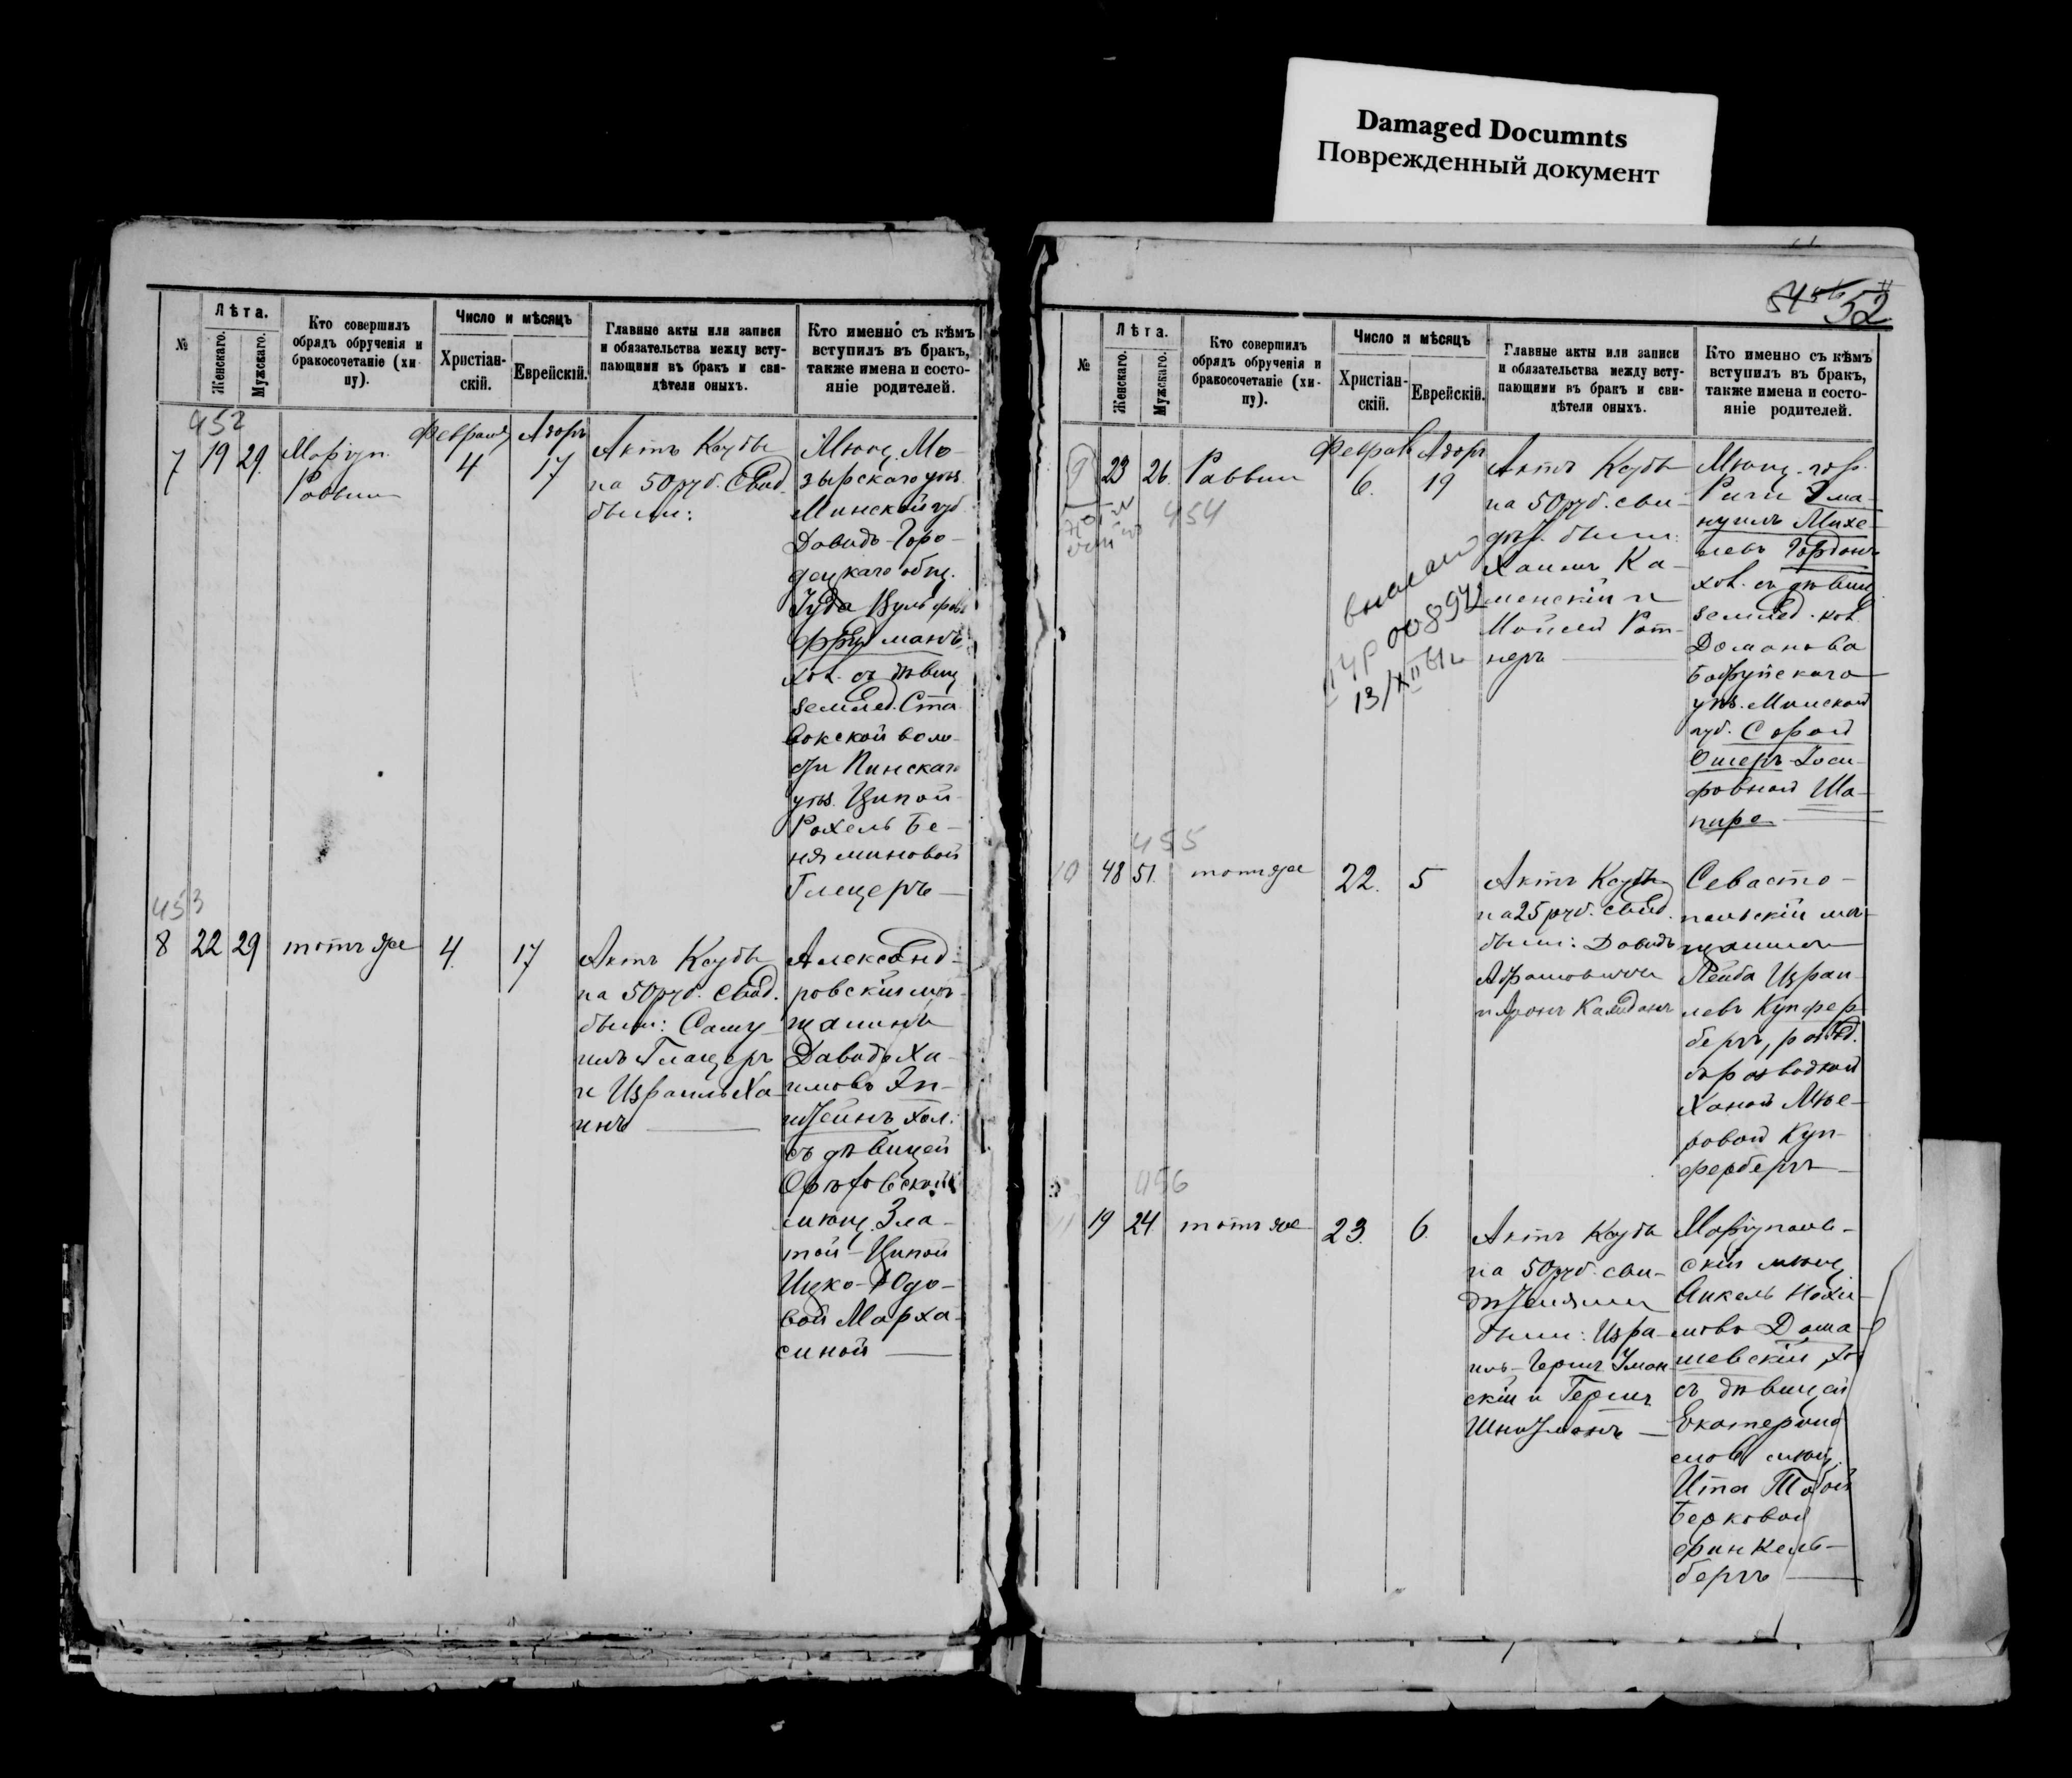 Damaged Documnts
Поврежденный документ
№
Лѣта.
Женскаго.
Мужскаго.
Кто совершилъ
обрядъ обрученія и
бракосочетаніе (хи-
пу).
Число и мѣсяцъ
Христіан-
скій.
Еврейскій.
Главные акты или записи
и обязательства между всту-
пающими въ бракъ и сви-
дѣтели оныхъ.
Кто именно съ кѣмъ
вступилъ въ бракъ,
также имена и состо-
яніе родителей.
452
7
19
29.
Маріуп.
Раввин
Февраля
4
Адоръ
17
Актъ Ксубы
на 50 руб. Свид.
были:
Мѣщ. Мо-
зырскаго уѣз.
Минской губ.
Давидъ-Горо-
децкаго общ.
Іуда Вульфовъ
хол. съ дѣвиц
землед. Ста
вокской воло-
сти Пинскаго
уѣз. Ципой-
Рохель Бе-
няминовой
Глецеръ
453
8
22
29
тотъ же
4.
17
Актъ Ксубы
на 50 руб. Свид.
были: Саму-
илъ Глацеръ
и Израиль Ха-
инъ
Александ-
ровскій мѣ-
щанинъ
Давидъ Ха-
имовъ Эп-
штейнъ хол.
съ дѣвицей
Орѣховской
мѣщ. Зла-
той-Ципой
Ицко-Юдо-
вой Марха-
синой
54
52
№
Лѣта.
Женскаго.
Мужскаго.
Кто совершилъ
обрядъ обрученія и
бракосочетаніе (хи-
пу).
Число и мѣсяцъ
Христіан-
скій.
Еврейскій.
Главные акты или записи
и обязательства между всту-
пающими въ бракъ и сви-
дѣтели оныхъ.
Кто именно съ кѣмъ
вступилъ въ бракъ,
также имена и состо-
яніе родителей.
9
23
26.
Раввин
454
Феврал
6.
Адоръ
19
008942
13/XII 61
Актъ Ксубы
на 50 руб. сви-
дѣт. были:
Хаимъ Ка-
менскій и
Мойсей Рот-
неръ
Мѣщ. гор.
Риги Эма-
нуилъ Михе-
левъ Гордонъ
хол. съ дѣвиц
землед. кол.
Доманова
Бобруйскаго
уѣз. Минской
губ. Сорой
Ошеръ-Іоси-
фовной Ша-
пиро
455
10
48
51.
тотъ же
22.
5
Актъ Ксубы
на 25 руб. свид.
были: Давидъ
Абрамовичъ
и Аронъ
Севасто-
польскій мѣ-
щанинъ
Лейба Изра-
левъ Купфер
бергъ, развед.
съ разводкой
Ханой Мее-
ровой Куп-
ферберъ
456
11
19
24
тотъ же
23.
6.
Актъ Ксубы
на 50 руб. сви-
дѣтелями
были: Изра-
иль-Гершъ Уман
скій и Гершъ
Шнитманъ
Маріуполь-
скій мѣщ.
Анкель Нохи-
мовъ Дома-
шевскій, хол
съ дѣвицей
Екатерино
слов мѣщ.
Ита Тобой
Берковой
Финкель-
бергъ